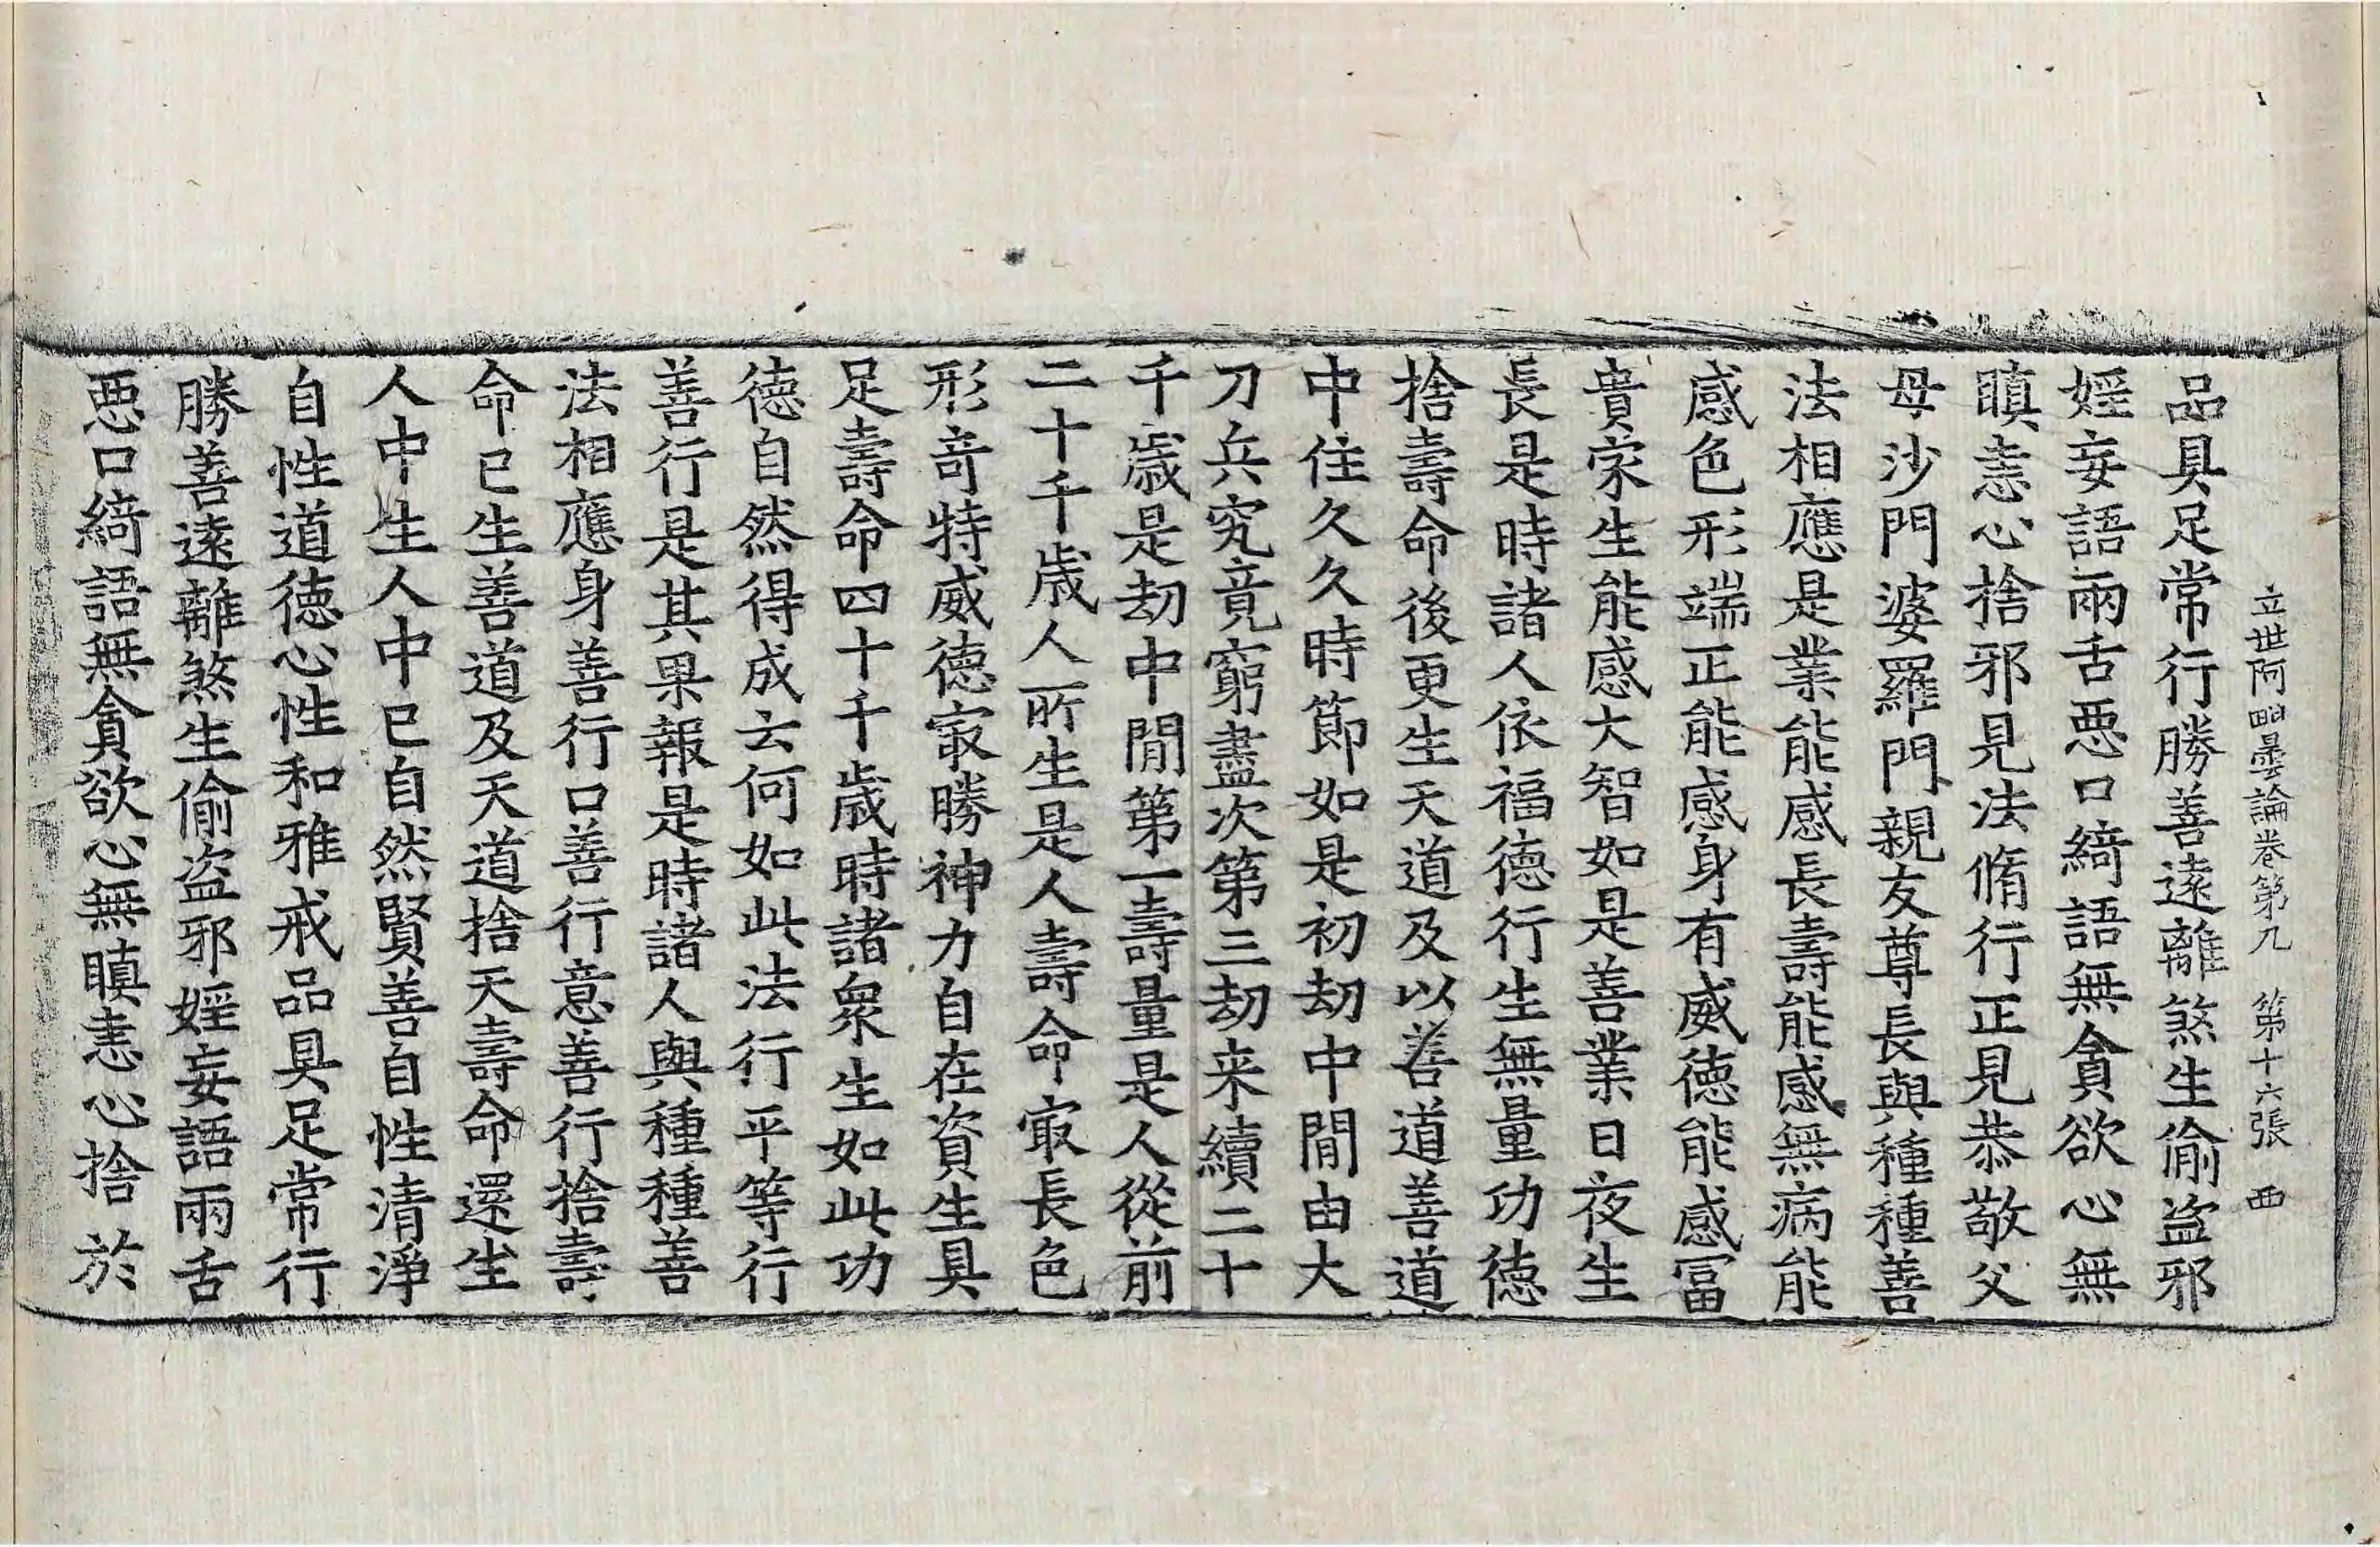 立世阿毗曇論卷第九 第十六張 西
品具足常行勝善遠離煞生偷盜邪
婬妄語兩舌惡口綺語無貪欲心無
瞋恚心捨邪見法脩行正見恭敬父
母沙門婆羅門親友尊長與種種善
法相應是業能感長壽能感無病能
感色形端正能感身有威德能感冨
貴家生能感大智如是善業日夜生
長是時諸人依福德行生無量功德
捨壽命後更生天道及以善道善道
中住久久時節如是初劫中間由大
刀兵究竟窮盡次第三劫来續二十
千歲是劫中間第一壽量是人從前
二十千歲人所生是人壽命㝡長色
形奇特威德㝡勝神力自在資生具
足壽命四十千歲時諸衆生如此功
德自然得成云何如此法行平等行
善行是其果報是時諸人與種種善
法相應身善行口善行意善行捨壽
命已生善道及天道捨天壽命還生
人中生人中已自然賢善自性清淨
自性道德心性和雅戒品具足常行
勝善遠離煞生偷盜邪婬妄語兩舌
惡口綺語無貪欲心無瞋恚心捨於